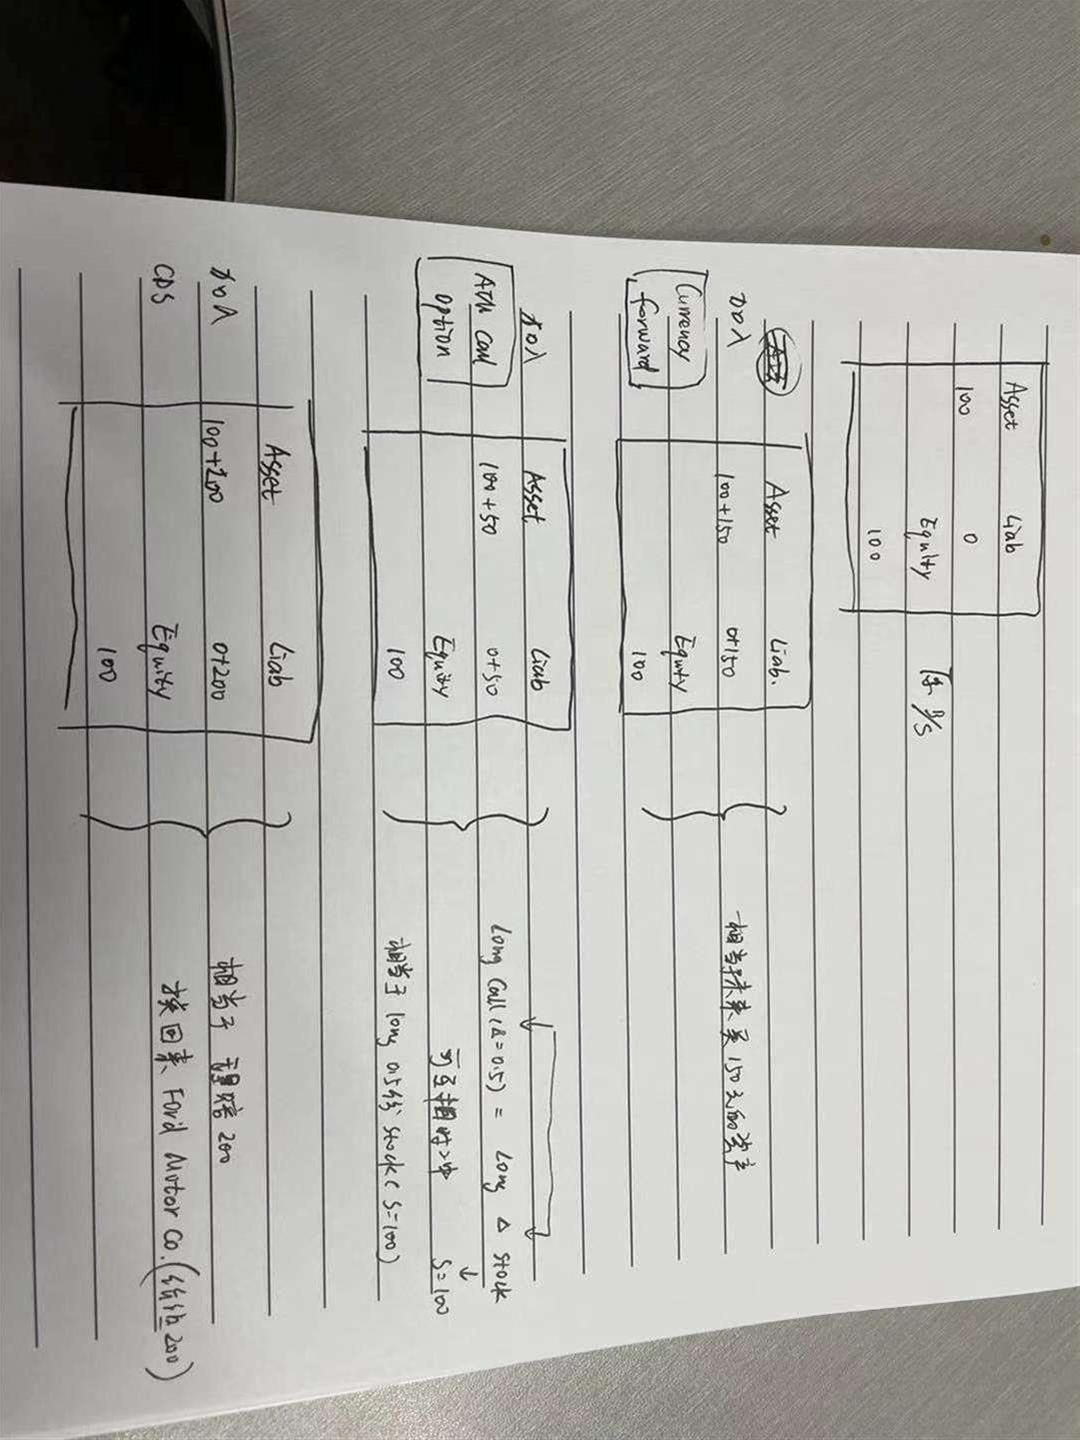 Asset Liab
100 0
Equity
100
原 B/S
加入
Currency
forward
Asset Liab.
100+150 0+150
Equity
100
相当于未来买150元的资产
加入
ATM Call
option
Asset Liab
100+50 0+50
Equity
100
Long Call (Δ=0.5) = Long Δ stock
可互相对冲 S=100
相当于 long 0.5份 stock (S=100)
加入
CDS
Asset Liab
100+200 0+200
Equity
100
相当于 理赔 200
换回来 Ford Motor Co. (价值200)